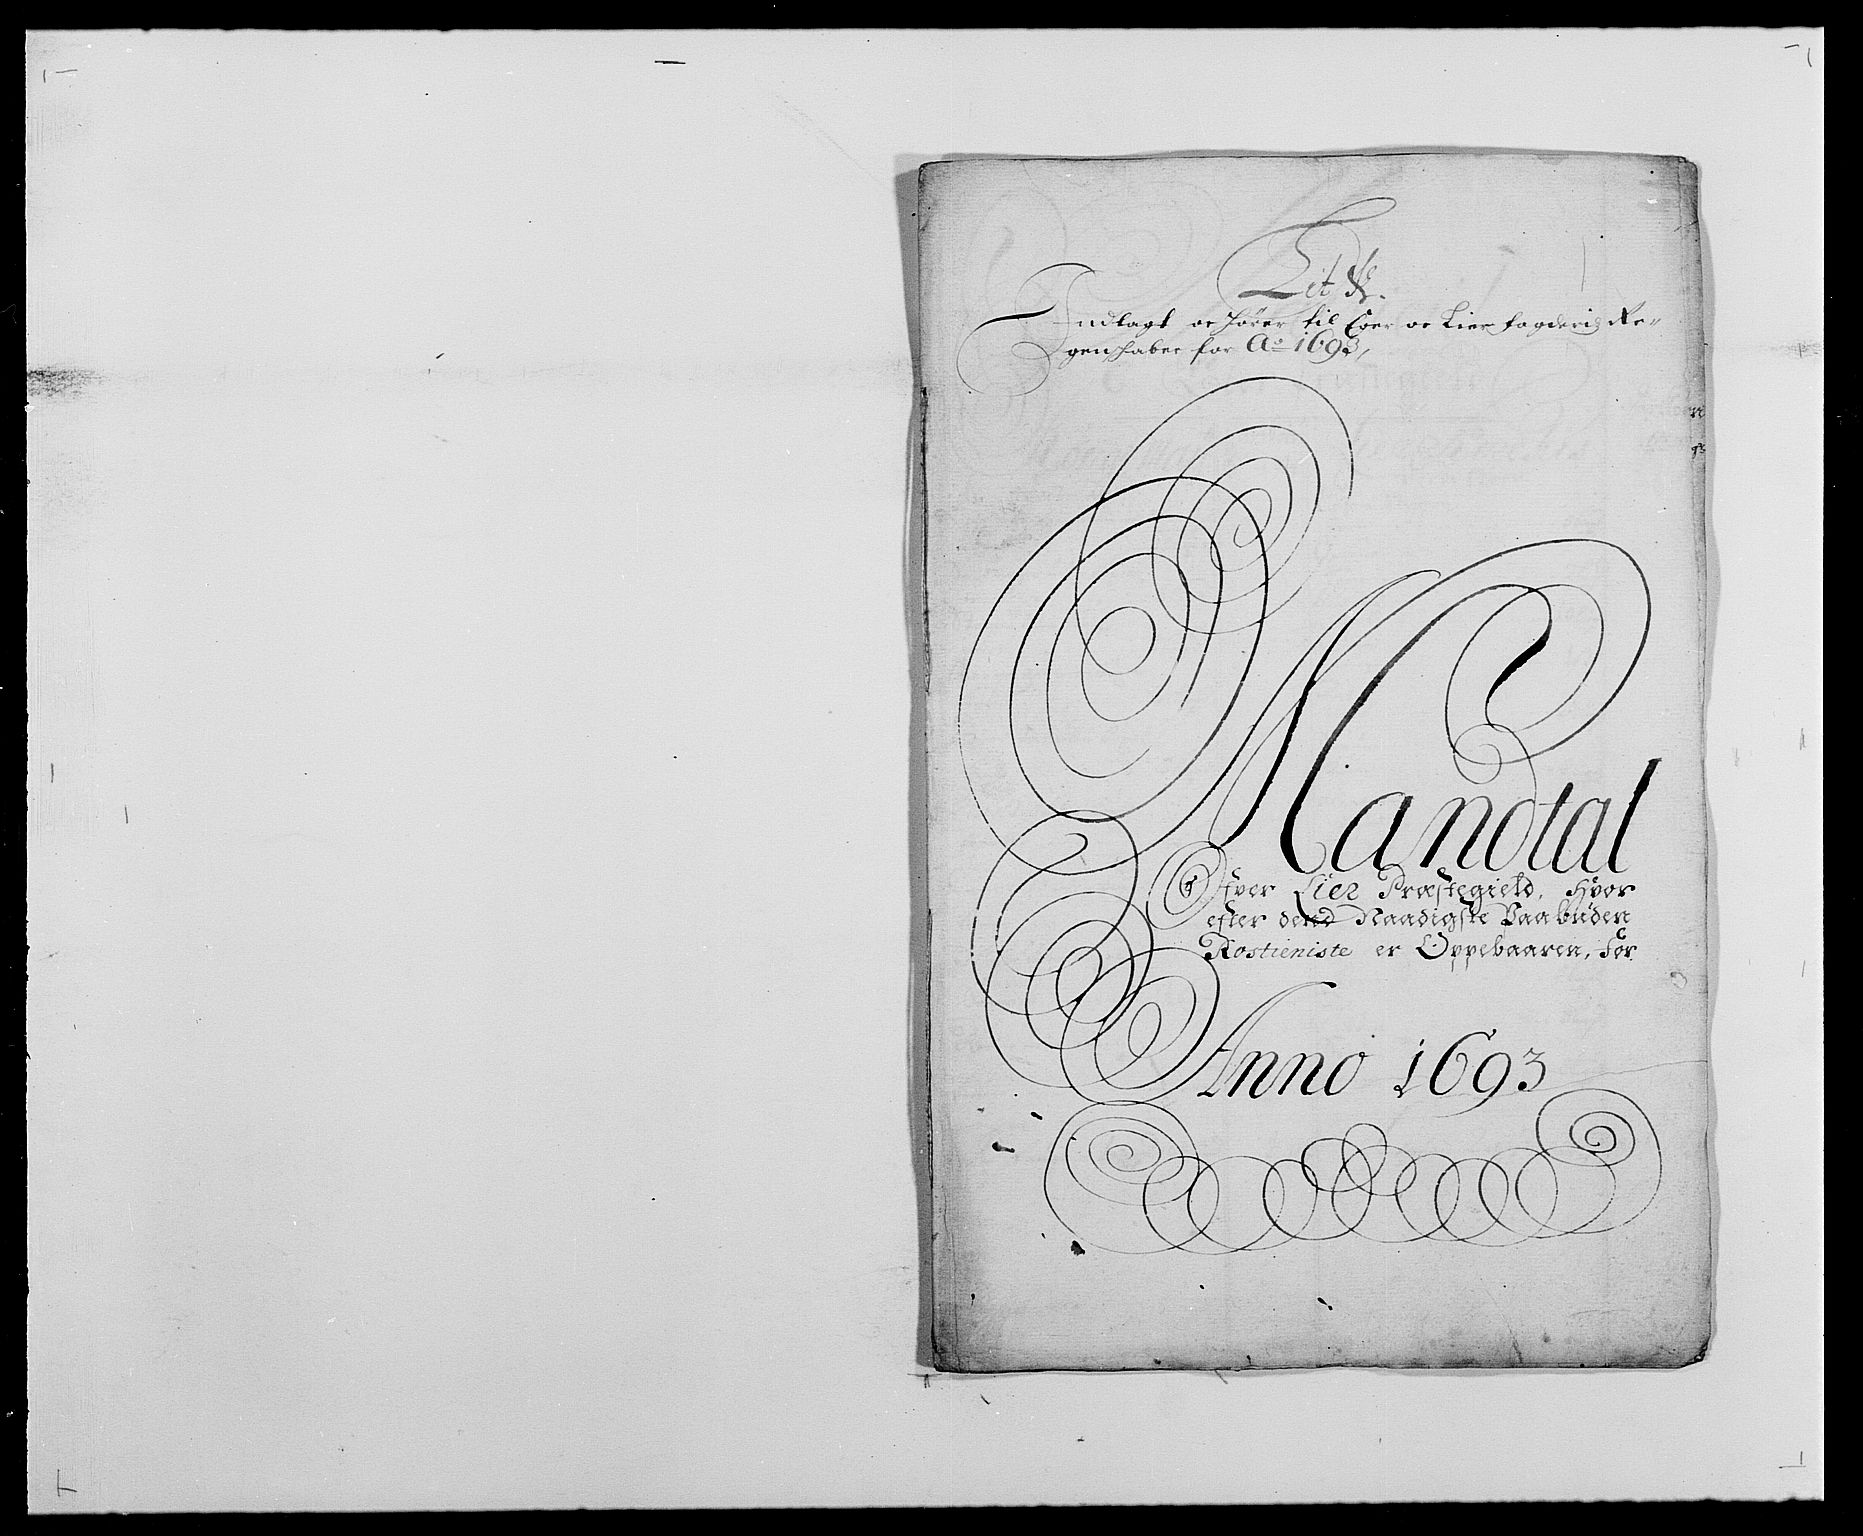 Lit
Indlagt oc hører til Eger oc Lier fogderis Re-
genschaber for Ao 1693,
Mandtal
Ofver Lier Præstegield, Hvor
efter dend Naadigste Paabuden
Rostieniste er Oppebaaren, for
Anno 1693